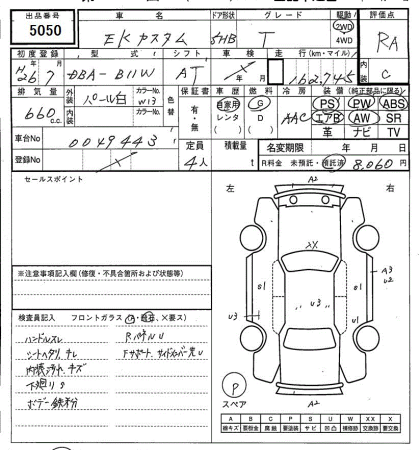 出品番号 車名 ドア形状 グレード 駆動 評価点
5050 EKカスタム 5HB T 2WD 4WD RA
初度登録 型式 シフト 車検 走行(km・マイル) 内装
H26年7月 DBA-B11W AT 年 月 162,745 C
排気量 外装 カラーNo. 色替 保証書 車歴 燃料 冷房 装備(純正部品に限る)
660c.c. パール白 W13 有・無 自家用 レンタ G D AAC PS PW ABS
内装 カラーNo. エアB AW SR
革 ナビ TV
車台No 0049443 定員 積載量 名変期限 年 月 日
登録No 4人 t R料金 未預託・預託済 8,060円
セールスポイント
左 右
A2
XX
A3
U2
S1 U3 S1
U3 U1
※注意事項記入欄(修復・不具合箇所および状態等)
検査員記入 フロントガラス(A・飛石、×要ス)
ハンドルスレ RパネルU
シートヘタリ、チレ
内張汚れ、キズ
下廻りサ
ボデー鉄粉
P
スペア
A2
A B C P S U W X XX
線キズ 要板金 腐蝕 要塗装 サビ 凹凸 補修跡 要交換 交換跡